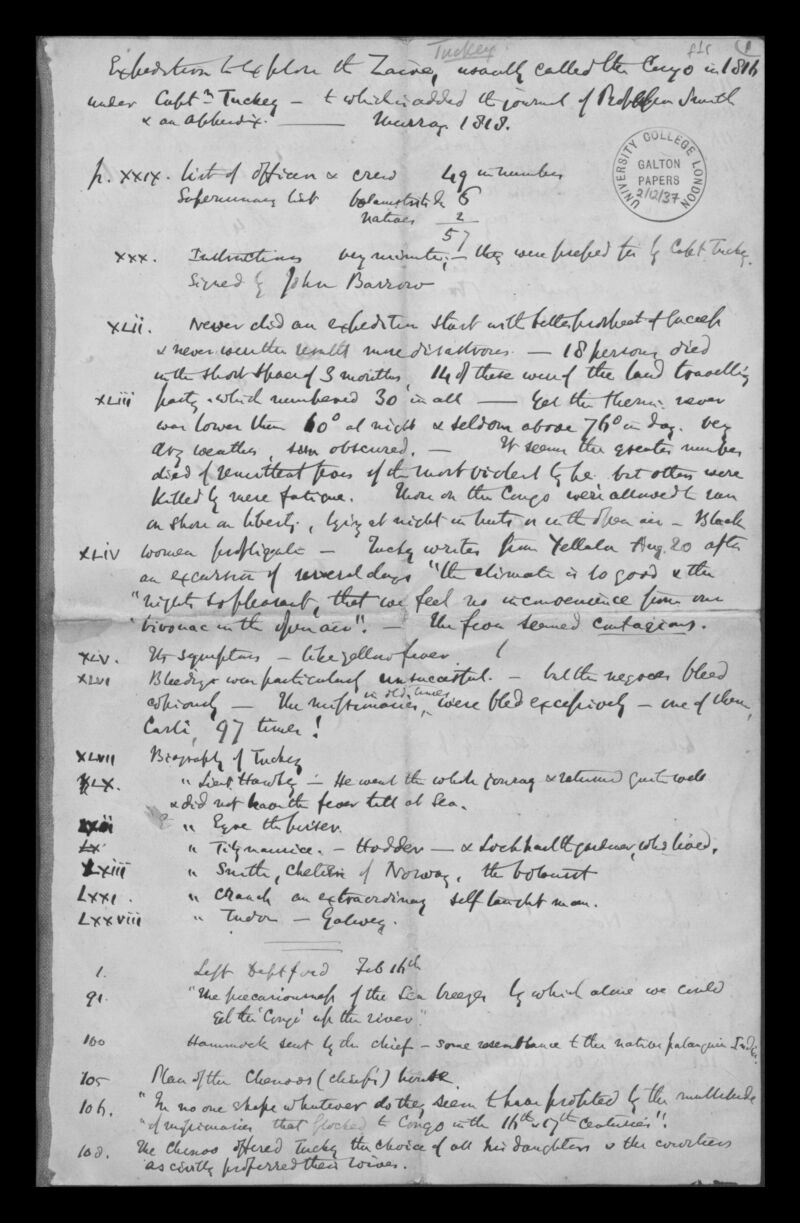 Tuckey
Expedition to explore the Zaire, usually called the Congo in 1816
under Captn Tuckey – to which is added the journal of Professor Smith
& an appendix. — Murray 1818.
UNIVERSITY COLLEGE LONDON
GALTON
PAPERS
2/12/37
p. xxix. List of officers & crew 49 in number
Supernumary list 6
natives 2
57
xxx. Instructions very minute; – they were prepared for by Capt Tuckey.
Signed by John Barrow
XLii. Never did an expedition start with better prospect of success
& never were the results more disastrous. — 18 persons died
in the short space of 3 months, 14 of these were of the land travelling
XLiii party which numbered 30 in all — Yet the therm: never
was lower than 60° at night & seldom above 76° in day. very
dry weather, sun obscured. — It seems the greater number
died of remittent fevers of the most violent type but others were
killed by mere fatigue. Those on the Congo were allowed to run
on shore on liberty, lying at night in huts or in the open air – Black
XLiV women profligate – Tuckey writes from Yellala Aug. 20 after
an excursion of several days "the climate is so good & the
"nights so pleasant, that we feel no inconvenience from our
"bivouac in the open air". – The fever seemed contagious.
XLV. Its symptoms – like yellow fever
XLVI Bleedings was particularly unsuccessful. – but the negroes bleed
copiously – The missionaries, in old times, were bled excessively – one of them,
Carli, 97 times!
XLVII Biography of Tuckey
LX. " Lieut. Hawkey – He went the whole journey & returned quite well
& did not have the fever till at Sea.
" Eyre the purser.
LX " Fitzmaurice. – Hodder – & Lockhart the gardener, who lived.
LXiii " Smith, Chetien of Norway, the botanist
LXXI. " Cranch an extraordinary self taught man.
LXXVIII " Tudor – Galwey.
1. Left Deptford Feb 16th
91. "The precariousness of the Sea breezes by which alone we could
get the 'Congo' up the river".
100 Hammock sent by the chief – some resemblance to the native palanquin
105 Plan of the Chenoos (chief's) house.
106. "In no one shape whatever do they seem to have profited by the multitude
"of missionaries that flocked to Congo in the 16th & 17th centuries".
108. The Chenoo offered Tuckey the choice of all his daughters & the courtiers
as civilly proferred their wives.